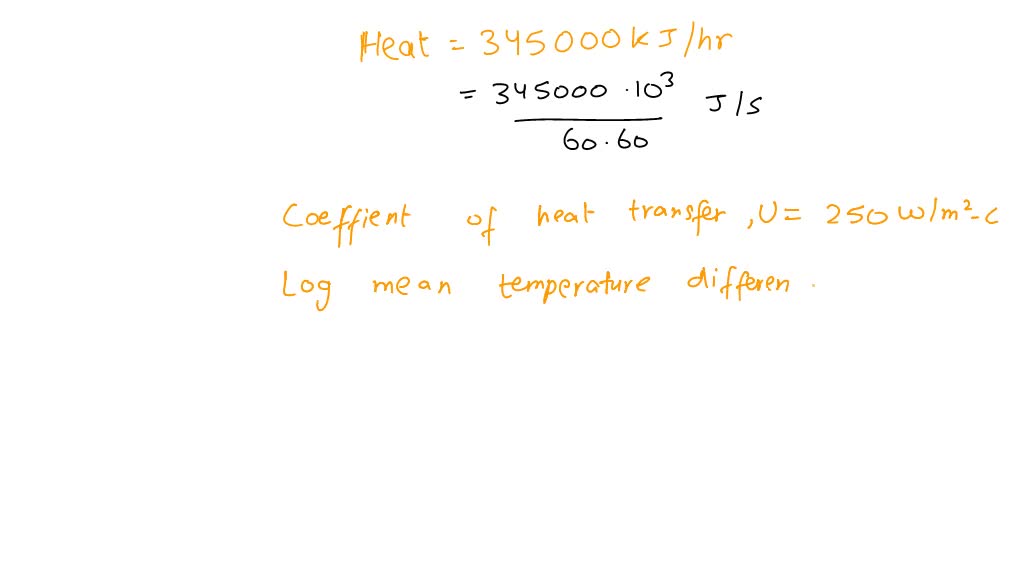 Heat = 345000 kJ/hr
= 345000 · 10³ / 60 · 60 J/s
Coeffient of heat transfer, U = 250 W/m²-C
Log mean temperature differen